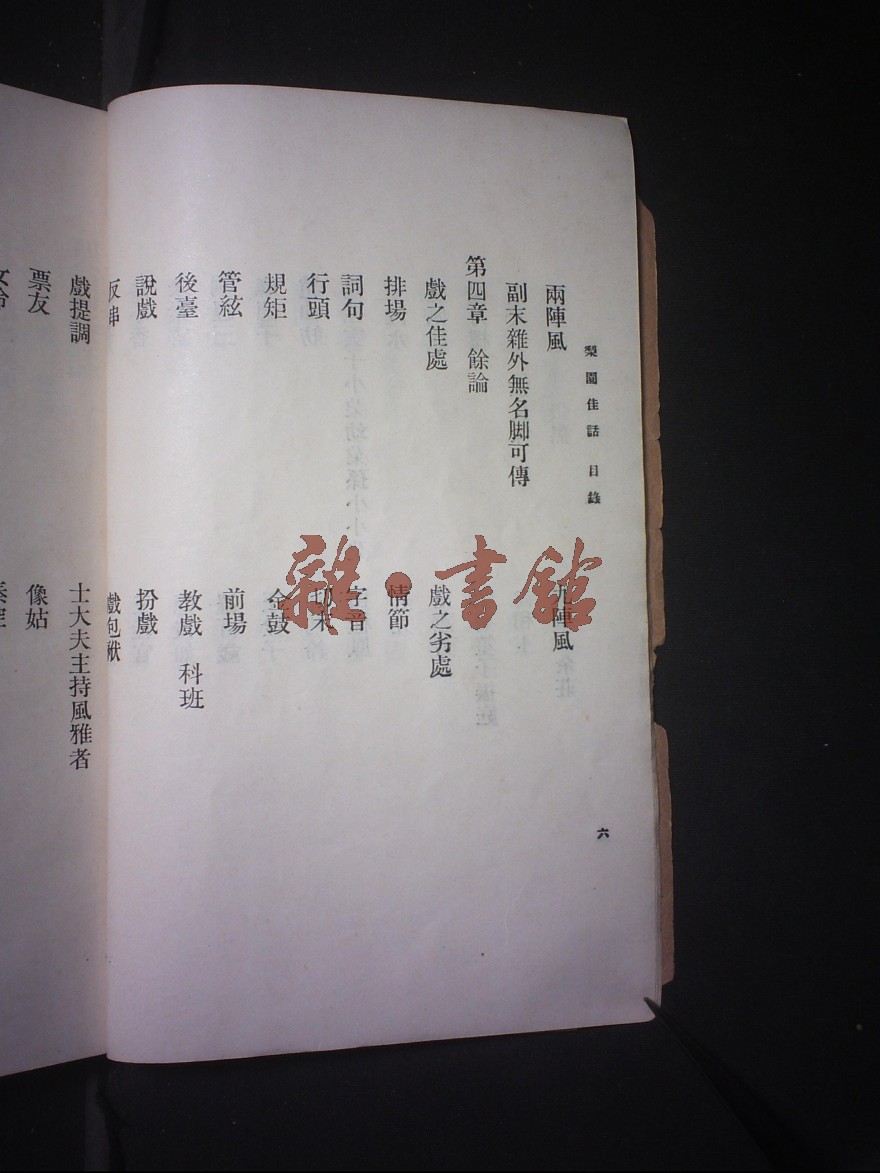 梨園佳話 目錄
六
兩陣風 九陣風
副末雜外無名脚可傳
第四章 餘論
戲之佳處 戲之劣處
排場 情節
詞句 字音
行頭 切末
規矩 金鼓
管絃 前場
後臺 教戲 科班
說戲 扮戲
反串 戲包袱
戲提調 士大夫主持風雅者
票友 像姑
雜·書館